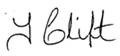 J Clift